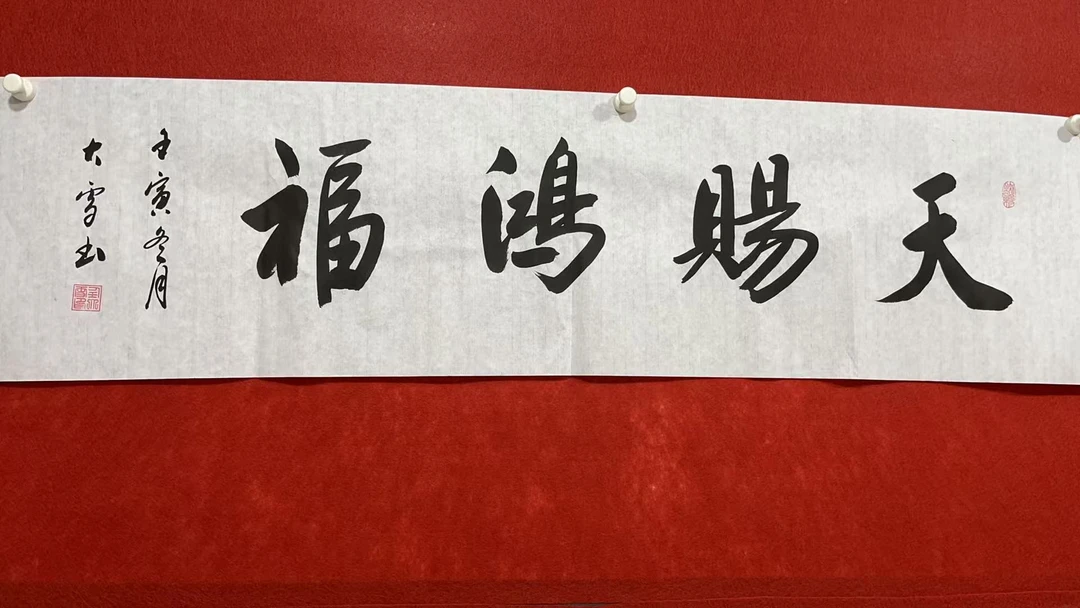 天賜鴻福
壬寅冬月
大雪書